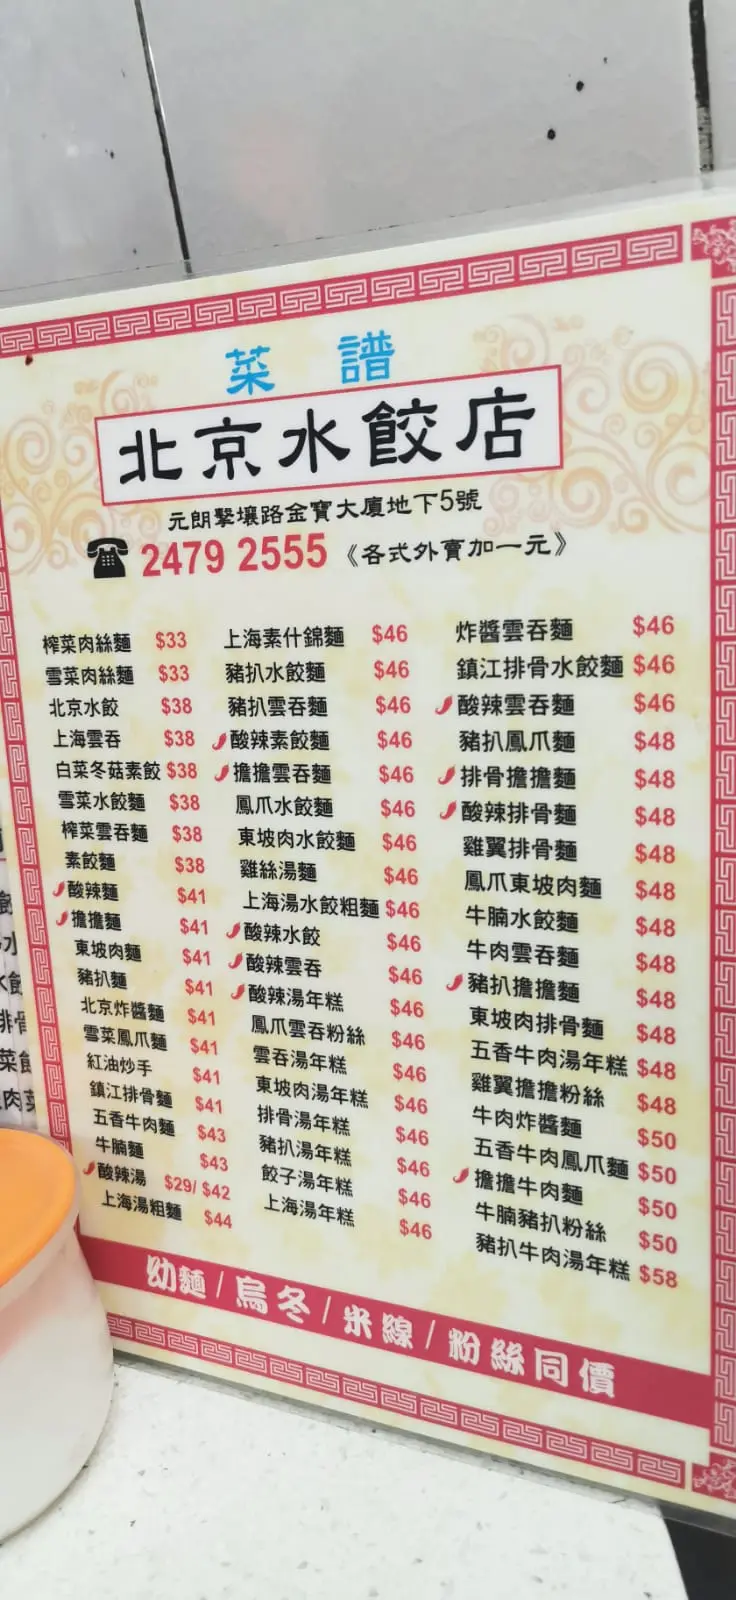 菜譜
北京水餃店
元朗擊壤路金寶大廈地下5號
2479 2555 《各式外賣加一元》
榨菜肉絲麵 $33
雪菜肉絲麵 $33
北京水餃 $38
上海雲吞 $38
白菜冬菇素餃 $38
雪菜水餃麵 $38
榨菜雲吞麵 $38
素餃麵 $38
酸辣麵 $41
擔擔麵 $41
東坡肉麵 $41
豬扒麵 $41
北京炸醬麵 $41
雪菜鳳爪麵 $41
紅油炒手 $41
鎮江排骨麵 $41
五香牛肉麵 $43
牛腩麵 $43
酸辣湯 $29/ $42
上海湯粗麵 $44
上海素什錦麵 $46
豬扒水餃麵 $46
豬扒雲吞麵 $46
酸辣素餃麵 $46
擔擔雲吞麵 $46
鳳爪水餃麵 $46
東坡肉水餃麵 $46
雞絲湯麵 $46
上海湯水餃粗麵 $46
酸辣水餃 $46
酸辣雲吞 $46
酸辣湯年糕 $46
鳳爪雲吞粉絲 $46
雲吞湯年糕 $46
東坡肉湯年糕 $46
排骨湯年糕 $46
豬扒湯年糕 $46
餃子湯年糕 $46
上海湯年糕 $46
炸醬雲吞麵 $46
鎮江排骨水餃麵 $46
酸辣雲吞麵 $46
豬扒鳳爪麵 $48
排骨擔擔麵 $48
酸辣排骨麵 $48
雞翼排骨麵 $48
鳳爪東坡肉麵 $48
牛腩水餃麵 $48
牛肉雲吞麵 $48
豬扒擔擔麵 $48
東坡肉排骨麵 $48
五香牛肉湯年糕 $48
雞翼擔擔粉絲 $48
牛肉炸醬麵 $50
五香牛肉鳳爪麵 $50
擔擔牛肉麵 $50
牛腩豬扒粉絲 $50
豬扒牛肉湯年糕 $58
幼麵/烏冬/米線/粉絲同價